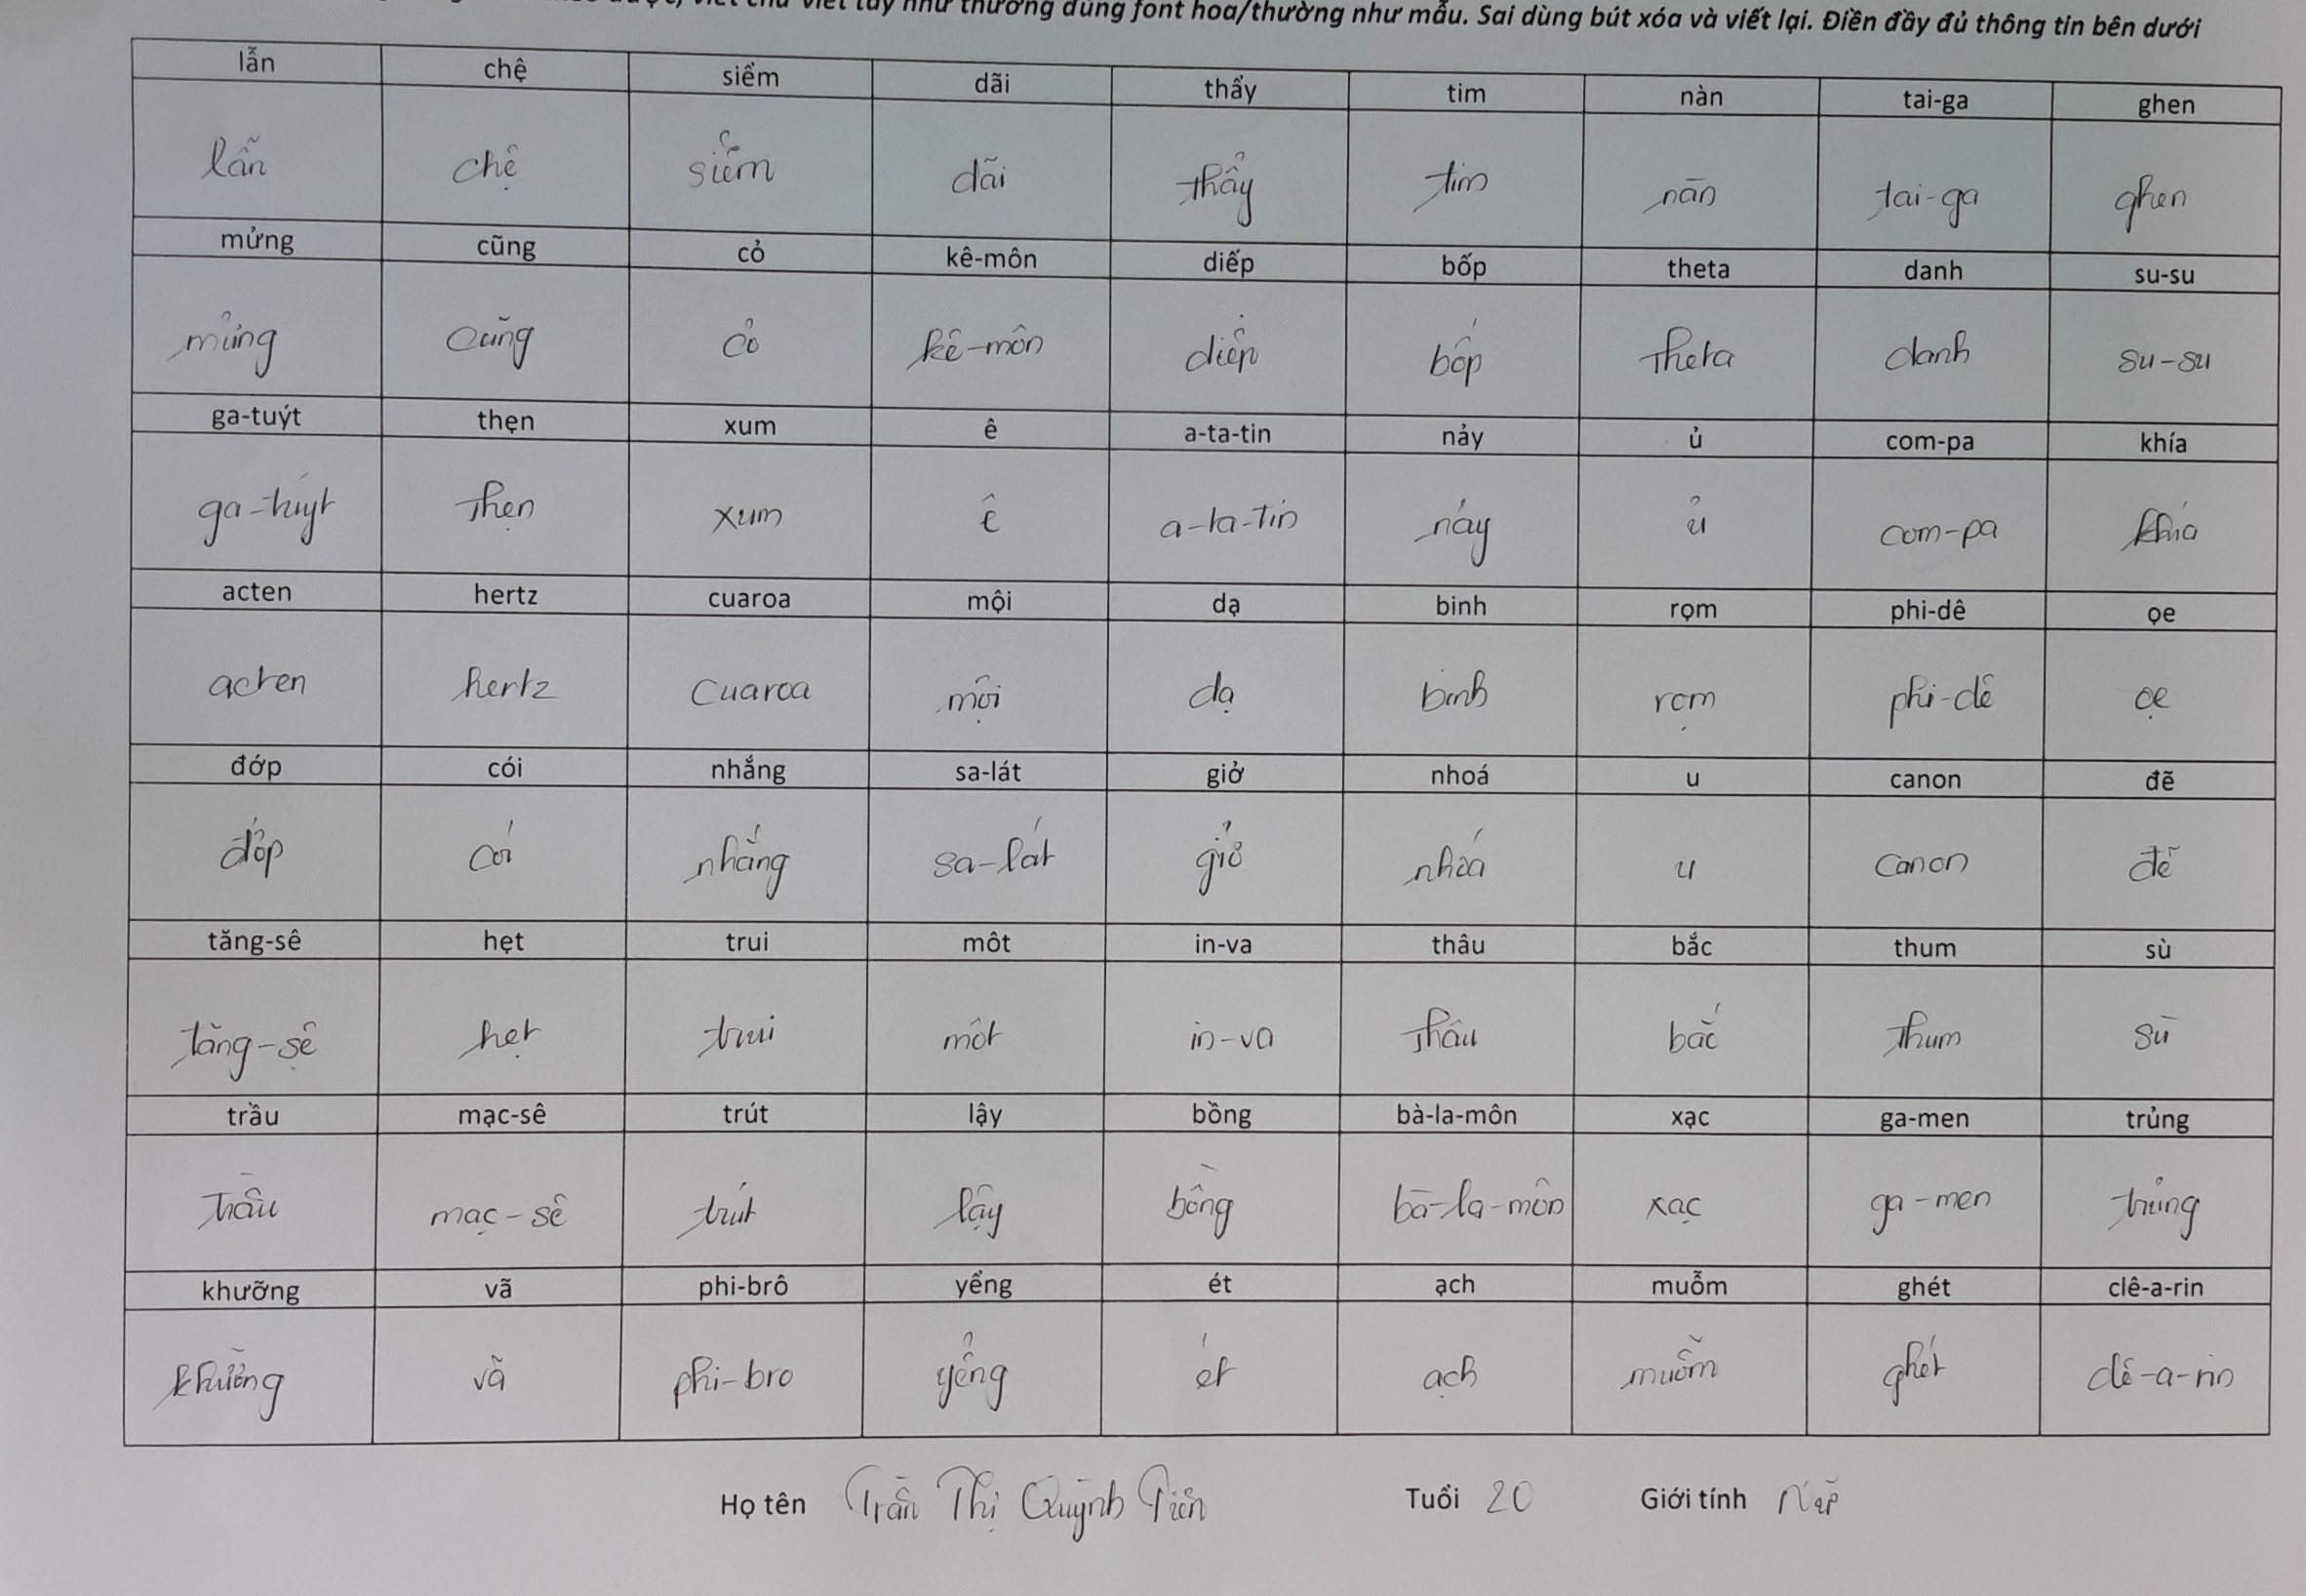 được, viết chữ viết tay như thường dùng font hoa/thường như mẫu. Sai dùng bút xóa và viết lại. Điền đầy đủ thông tin bên dưới
lẫn chệ siểm dãi thẩy tim nàn tai-ga ghen
lẫn chệ siểm dãi thẩy tim nàn tai-ga ghen
mửng cũng cỏ kê-môn diếp bốp theta danh su-su
mửng cũng cỏ kê-môn diếp bốp theta danh su-su
ga-tuýt thẹn xum ê a-ta-tin nảy ủ com-pa khía
ga-tuýt thẹn xum ê a-ta-tin nảy ủ com-pa khía
acten hertz cuaroa mội dạ binh rọm phi-dê ọe
acten hertz cuaroa mội dạ binh rọm phi-dê ọe
đớp cói nhắng sa-lát giở nhoá u canon đẽ
đớp cói nhắng sa-lát giở nhoá u canon đẽ
tăng-sê hẹt trui môt in-va thâu bắc thum sù
tăng-sệ hẹt trui môt in-va thâu bắc thum sù
trầu mạc-sê trút lậy bồng bà-la-môn xạc ga-men trủng
trầu mạc-sê trút lậy bồng bà-la-môn xạc ga-men trủng
khưỡng vã phi-brô yểng ét ạch muỗm ghét clê-a-rin
khưỡng vã phi-bro yểng ét ạch muỗm ghét clê-a-rin
Họ tên Trần Thị Quỳnh Tiên Tuổi 20 Giới tính Nữ